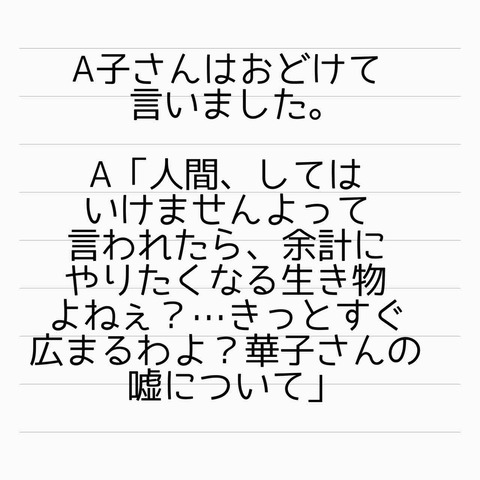 A子さんはおどけて
言いました。
A「人間、しては
いけませんよって
言われたら、余計に
やりたくなる生き物
よねぇ？…きっとすぐ
広まるわよ？華子さんの
嘘について」